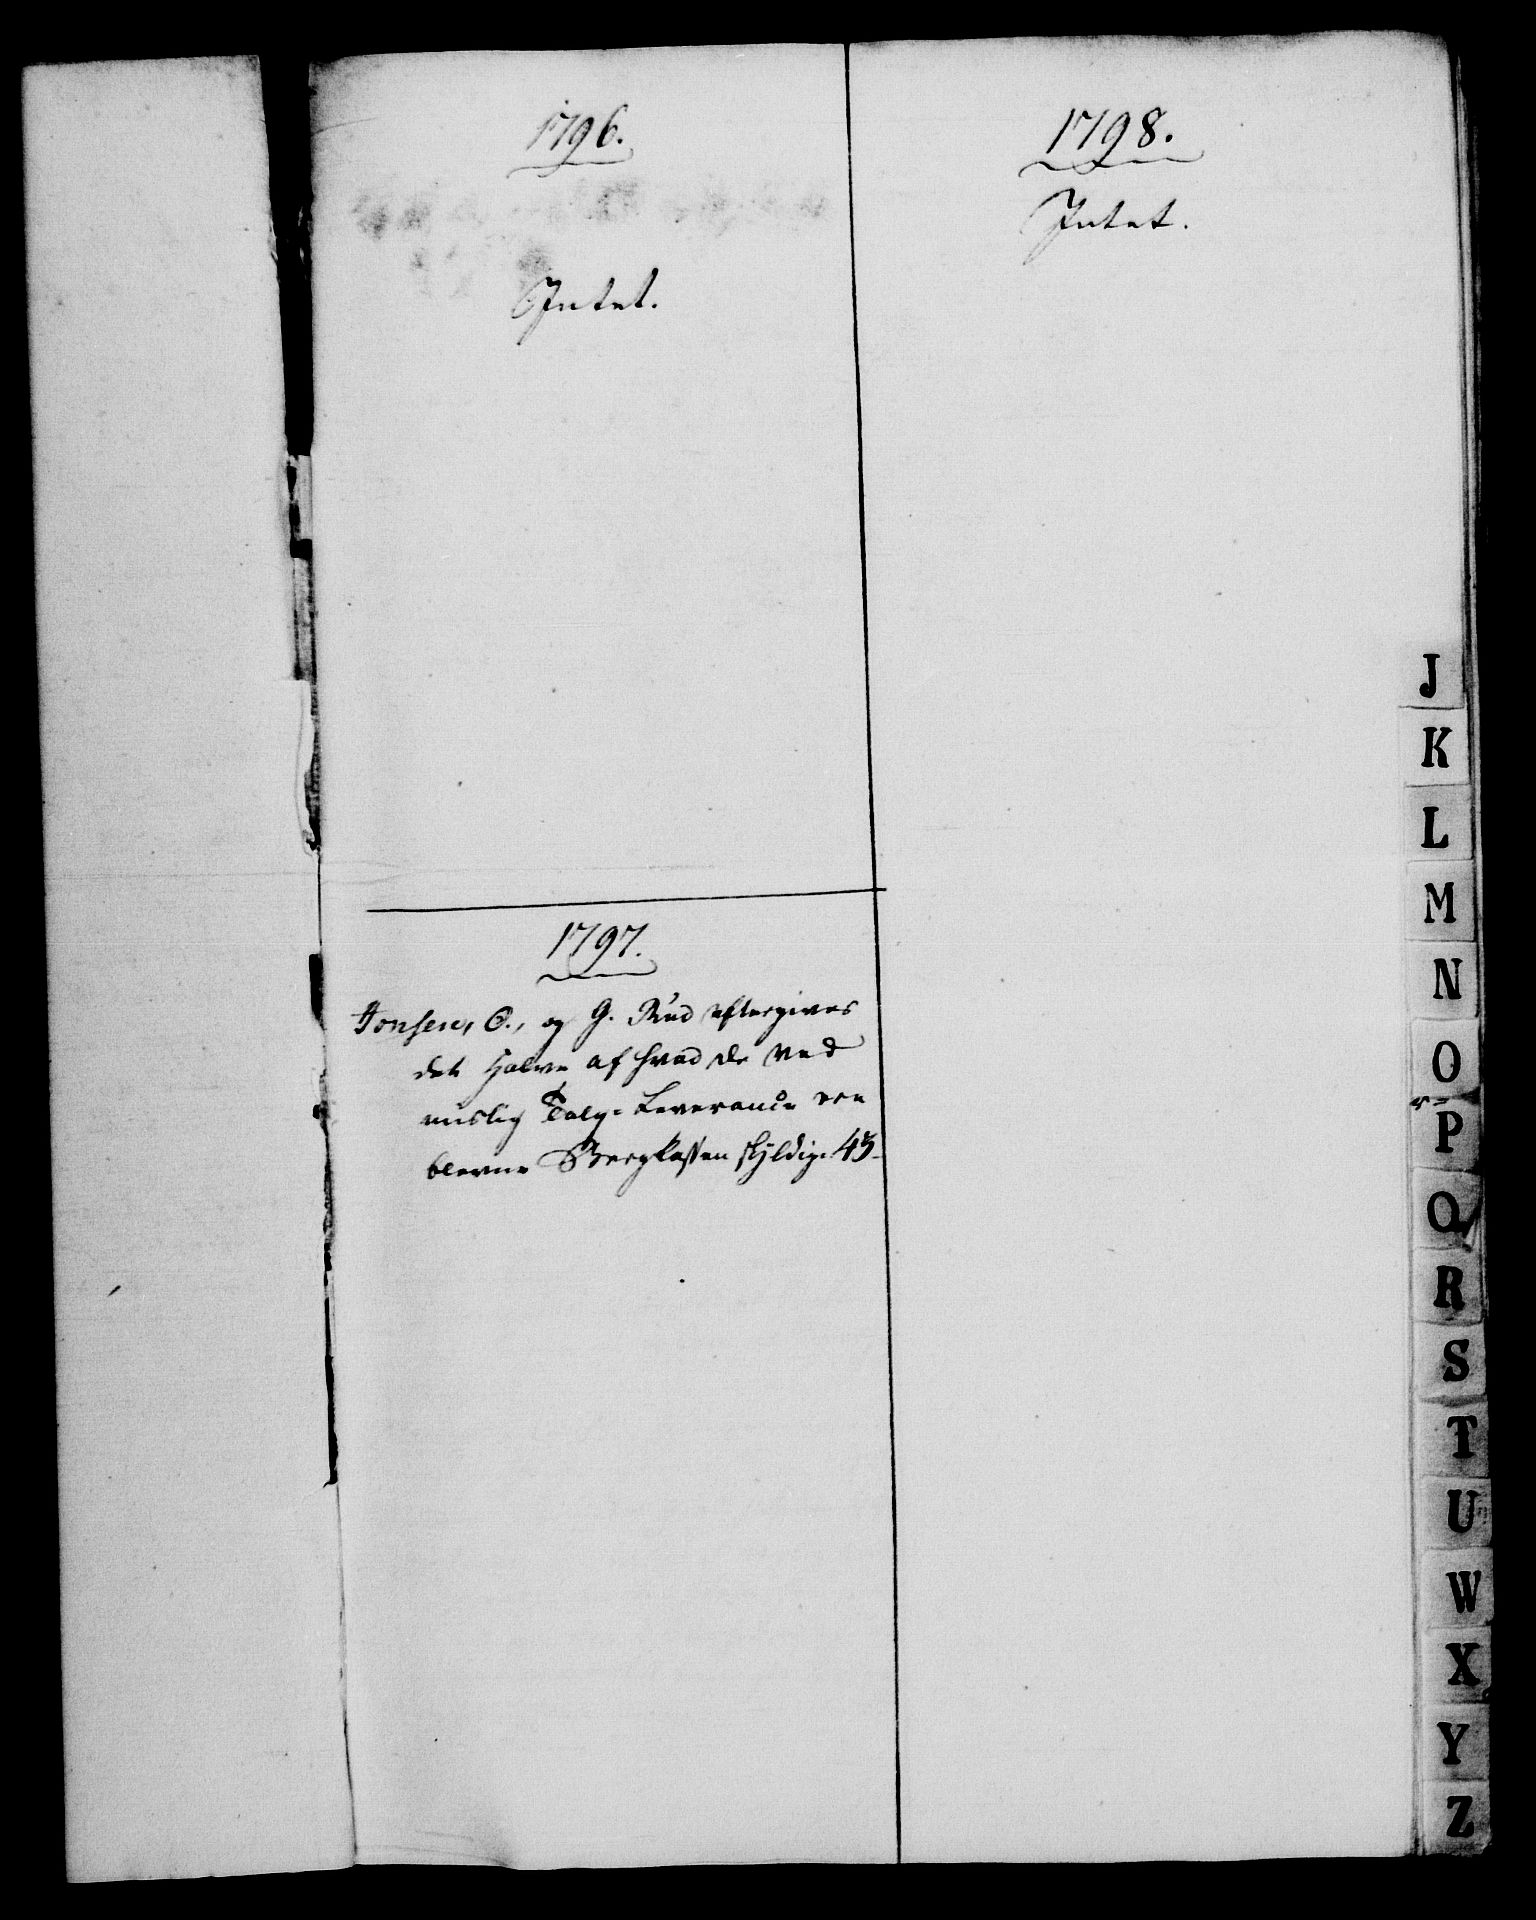 1796.
Intet.
1797.
Jonsen, O., og G. Rud eftergives
det halve af hvad de ved
mislig Talg-Leverance ere
blevne Bergkassen skyldig. 45.
1798.
Intet.
J
K
L
M
N
O
P
Q
R
S
T
U
W
X
Y
Z